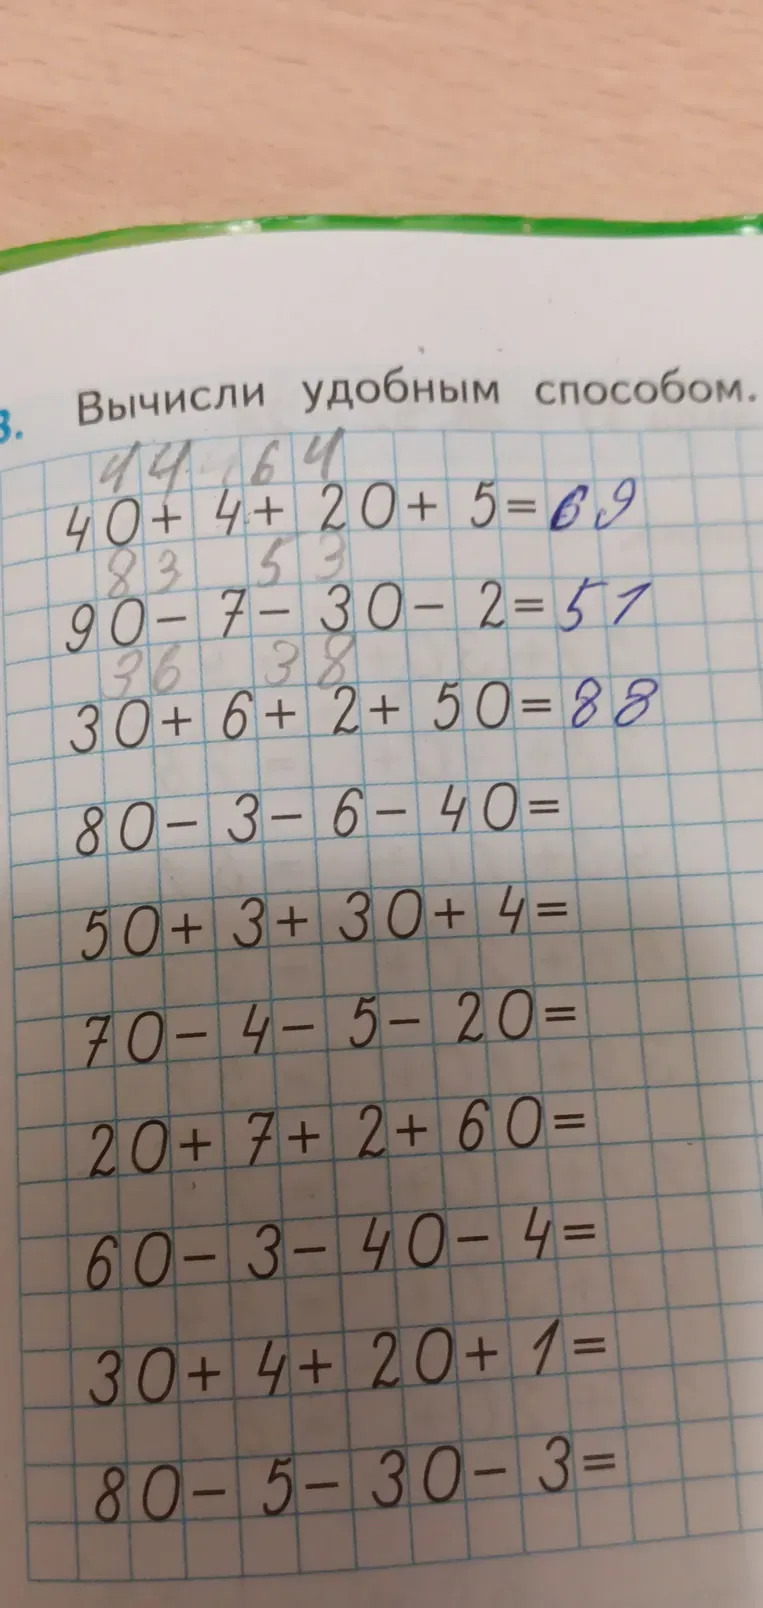 3. Вычисли удобным способом.
44 64
40+ 4+ 20+ 5= 69
83 53
90- 7- 30- 2= 51
36 38
30+ 6+ 2+ 50= 88
80- 3- 6- 40=
50+ 3+ 30+ 4=
70- 4- 5- 20=
20+ 7+ 2+ 60=
60- 3- 40- 4=
30+ 4+ 20+ 1=
80- 5- 30- 3=